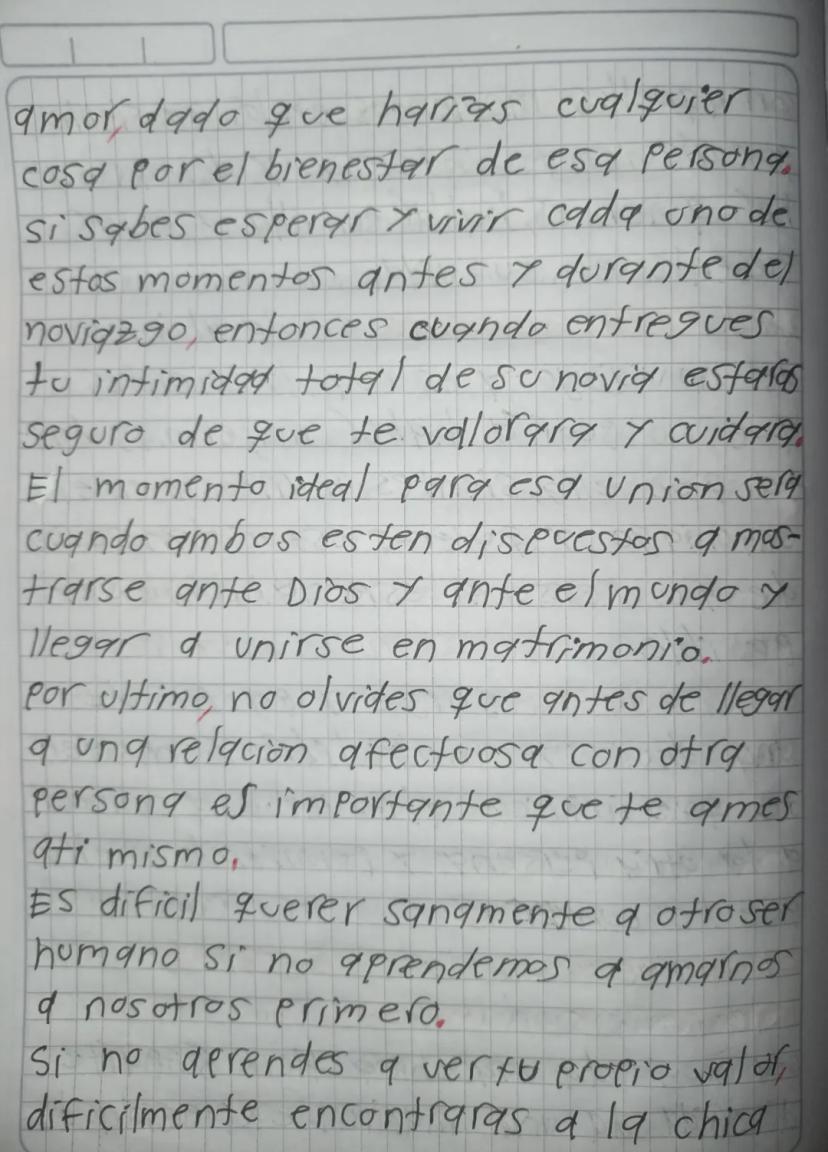 amor, dado que harias cualquier
cosa por el bienestar de esa persona.
si sabes esperar y vivir cada uno de
estos momentos antes y durante del
noviazgo, entonces cuando entregues
tu intimidad total de su novia estaras
seguro de que te vallorara y cuidara.
El momento ideal para esa union sera
cuando ambos esten dispuestos a mos-
trarse ante Dios y ante el mundo y
llegar a unirse en matrimonio.
por ultimo, no olvides que antes de llegar
a una relacion afectuosa con otra
persona es importante que te ames
a ti mismo.
Es dificil querer sanamente a otro ser
humano si no aprendemos a amarnos
a nosotros primero.
si no aprendes a ver tu propio valor,
dificilmente encontraras a la chica